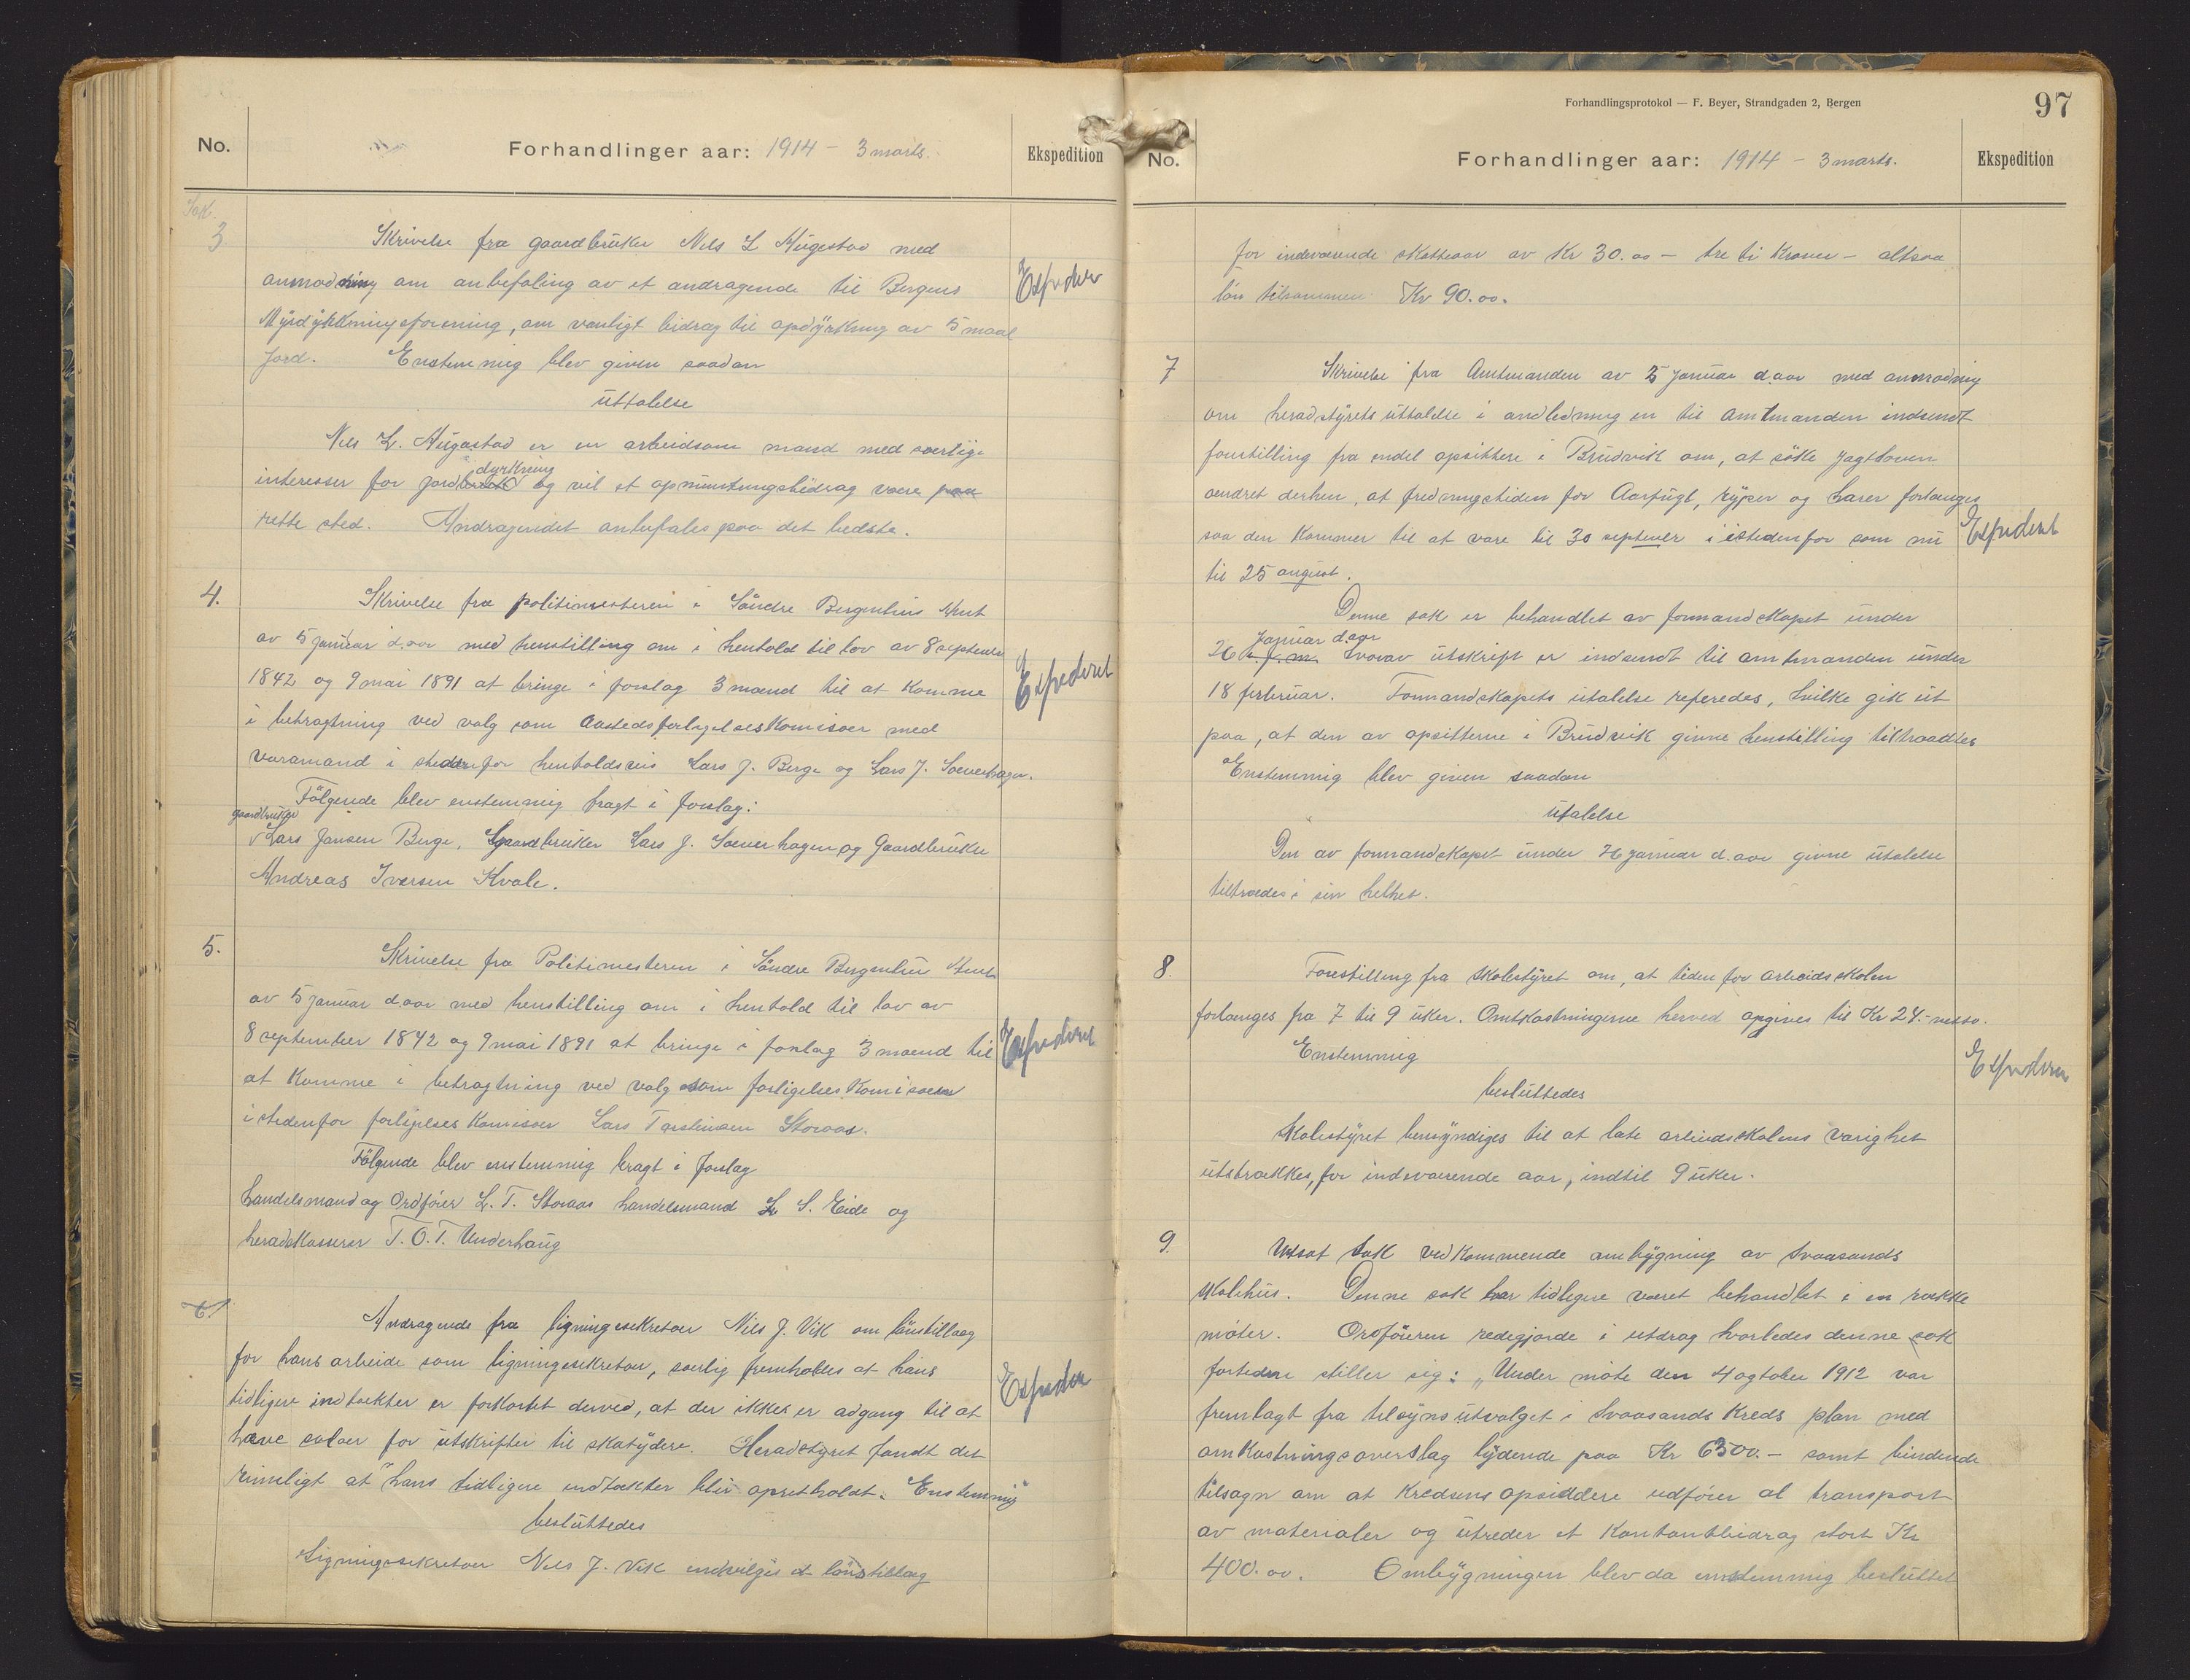 No.
Forhandlinger aar: 1914 - 3 marts.
Ekspedition
Sak.
3
Skrivelse fra gaardbruker Nils L Augestad med
anmodning om anbefaling av et andragende til Bergens
Myrdyrkningsforening, om vanligt bidrag til opdyrkning av 5 maal
jord. Enstemmig blev given saadan
uttalelse
Nils L. Augastad er en arbeidsom mand med særlige
interesser for jordbruk dyrkning og vil et opmuntringsbidrag være paa
rette sted. Andragendet anbefales paa det bedste.
Expeder
4.
Skrivelse fra politimesteren i Söndre Bergenhus Amt
av 5 januar d.aar med henstilling om i henhold til lov av 8 septembr
1842 og 9 mai 1891 at bringe i forslag 3 mænd til at komme
i betragtning ved valg som Aastedsforligelseskomisær med
varamand i stedenfor henholdsvis Lars J. Berge og Lars J. Soeverhagen.
Fölgende blev enstemmig bragt i forslag:
gaardbruker
Lars Jansen Berge, Gaardbruker Lars J. Soeverhagen og Gaardbruker
Andreas Iversen Kvale.
Expederet
5.
Skrivelse fra Politimesteren i Söndre Bergenhus Amt
av 5 januar d.aar med henstilling om i henhold til lov av
8 september 1842 og 9 mai 1891 at bringe i forslag 3 mænd til
at komme i betragtning ved valg som forligelseskomisær
istedenfor forligelseskomisær Lars Torsteinsen Storaas.
Fölgende blev enstemmig bragt i forslag
Handelsmand og Ordförer L. T. Storaas handelsmand L. S. Eide og
heradskasserer T. O. T. Underhaug
Expederet
6
Andragende fra ligningssekretær Nils J. Vik om lönstillæg
for hans arbeide som ligningssekretær, særlig fremholdes at hans
tidligere indtækter er forkortet derved, at der ikke er adgang til at
hæve salær for utskrifter til skatydere. Heradstyret fandt det
rimeligt at hans tidligere indtækter blir opretholdt. Enstemmig
besluttedes
Ligningssekretær Nils J. Vik indvilges et lönstillæg
Expeder
Forhandlingsprotokol — F. Beyer, Strandgaden 2, Bergen
97
No.
Forhandlinger aar: 1914 - 3 marts.
Ekspedition
for indeværende skatteaar av Kr 30.00 - tre ti Kroner - altsaa
lön tilsammen Kr 90.00.
7
Skrivelse fra Amtmanden av 5 januar d.aar med anmodning
om heradstyrets uttalelse i andledning en til amtmanden indsendt
forestilling fra endel opsittere i Brudvik om, at söke jagtloven
ændret derhen, at fredningstiden for Aarfugl, ryper og harer forlænges
saa den kommer til at vare til 30 septemer i istedenfor som nu
til 25 august.
Denne sak er behandlet av formandskapet under
januar d.aar
26 hvorav utskript er indsendt til amtmanden under
18 februar. Formandskapets utalelse referedes, hvilke gik ut
paa, at den av opsitterne i Brudvik givne henstilling tiltraadtes
Enstemmig blev given saadan
utalelse
Den av formandskapet under 26 januar d. aar givne utalelse
tiltrædes i sin helhet.
Expederet
8.
Forestilling fra skolestyret om, at tiden for arbeidsskolen
forlænges fra 7 til 9 uker. Omtkostningerne herved opgives til Kr 24.- netto.
Enstemmig
besluttedes
Skolestyret bemyndiges til at late arbeidsskolens varighet
utstrækkes, for indeværende aar, indtil 9 uker.
Expederes
9.
Utsat sak vedkommende ombygning av Svaasands
skolehus. Denne sak har tidligere været behandlet i en række
möter. Ordföreren redegjorde i utdrag hvorledes denne sak
fortiden stiller sig: „Under möte den 4 ogtober 1912 var
fremlagt fra tilsynsutvalget i Svaasands Kreds plan med
omkostningsoverslag lydende paa Kr 6300.- samt bindende
tilsagn om at Kredsens opsiddere udförer al transport
av materialer og utreder et Kontantbidrag stort Kr
400.00. Ombygningen blev da enstemmig besluttet